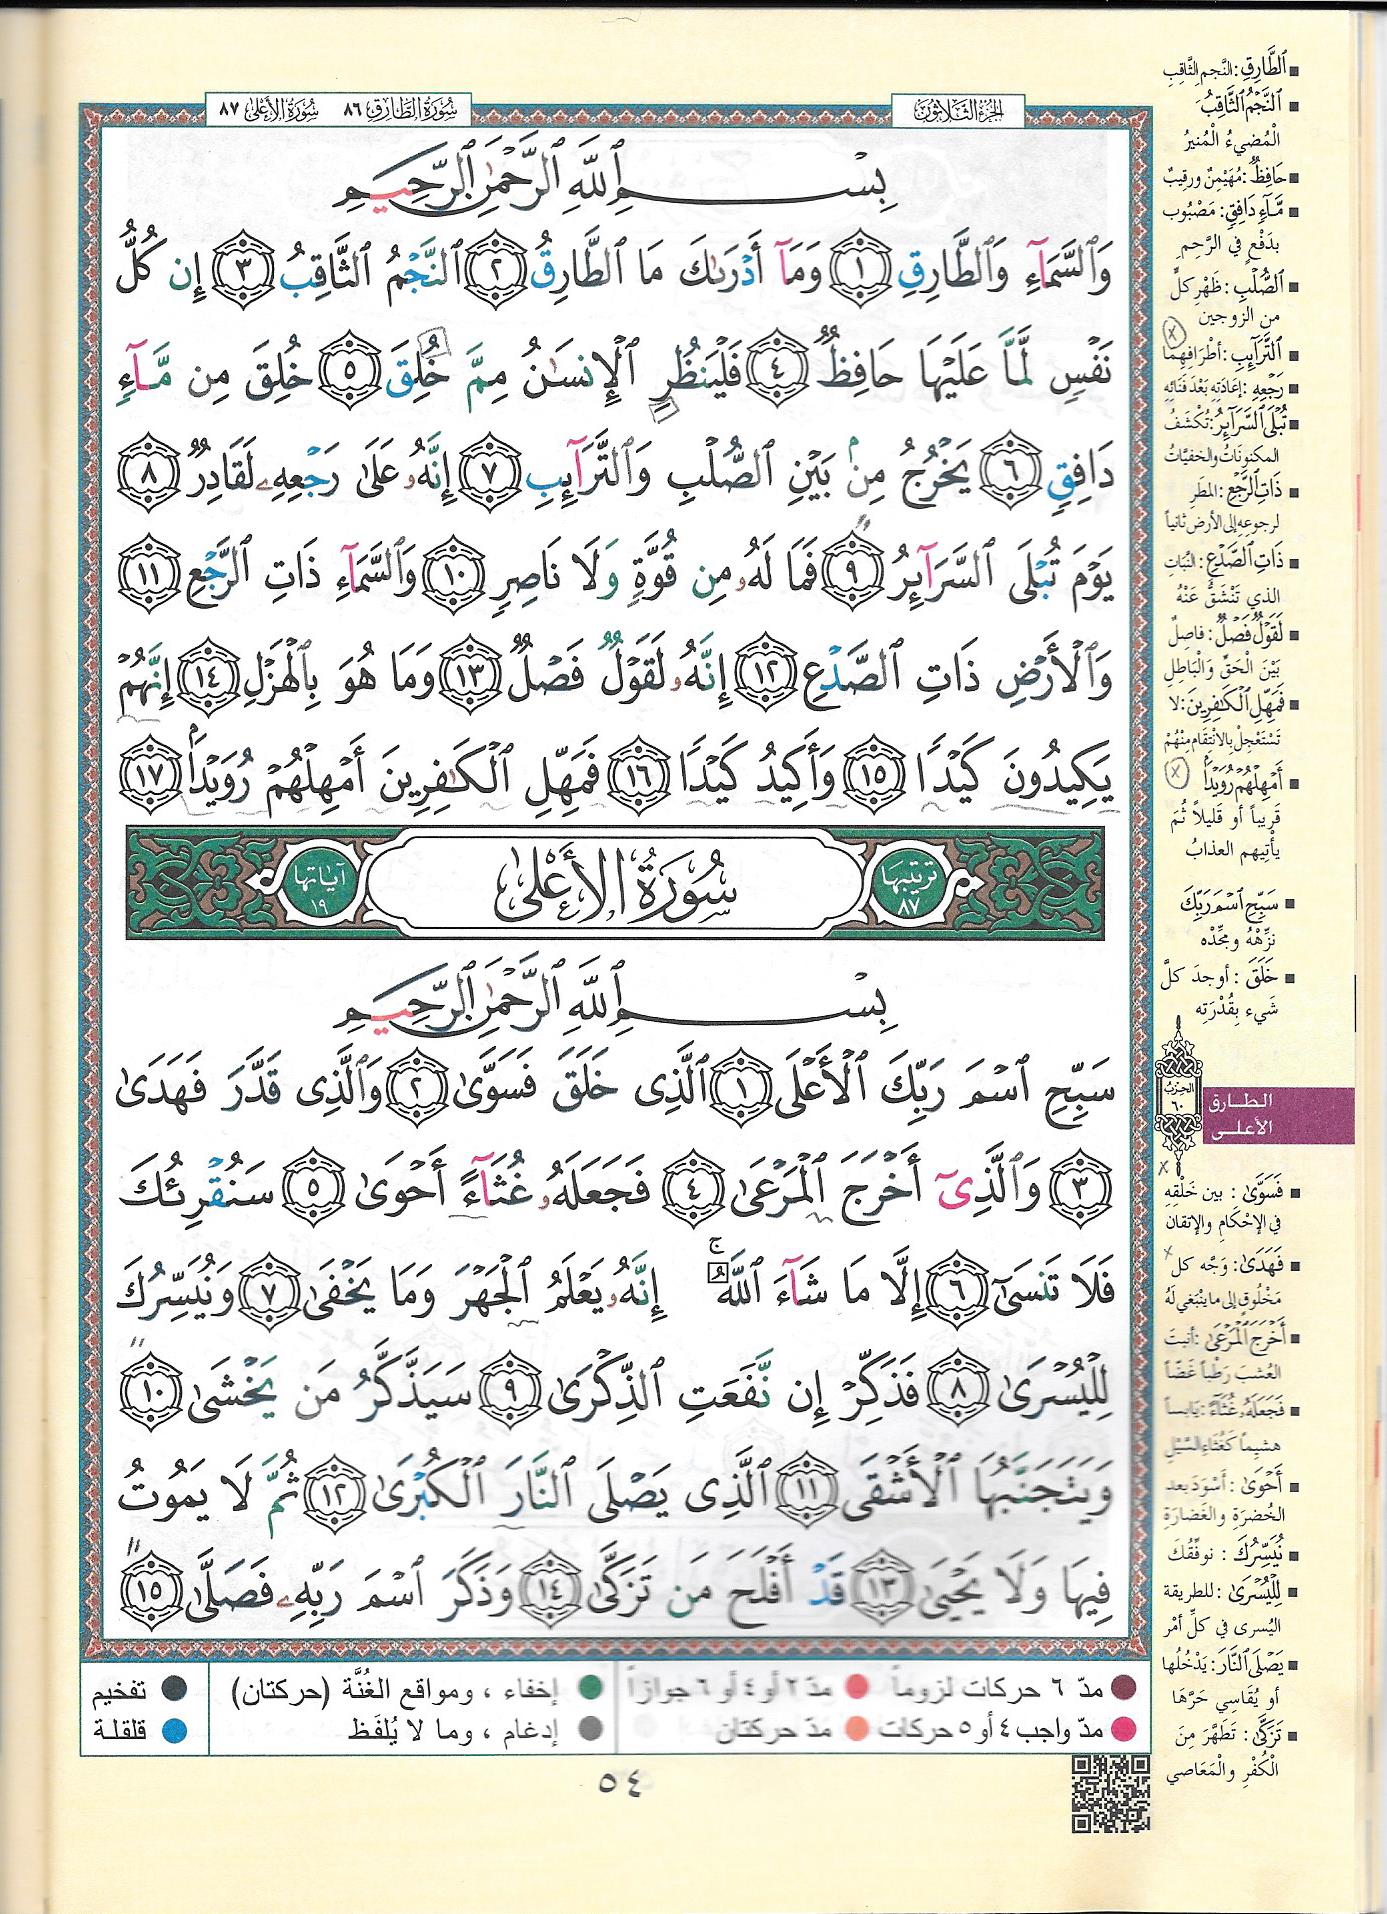 الجزء الثلاثون
سورة الطارق ٨٦ سورة الأعلى ٨٧
بِسْمِ ٱللَّهِ ٱلرَّحْمَٰنِ ٱلرَّحِيمِ
وَٱلسَّمَآءِ وَٱلطَّارِقِ ١ وَمَآ أَدْرَىٰكَ مَا ٱلطَّارِقُ ٢ ٱلنَّجْمُ ٱلثَّاقِبُ ٣ إِن كُلُّ
نَفْسٍ لَّمَّا عَلَيْهَا حَافِظٌ ٤ فَلْيَنظُرِ ٱلْإِنسَٰنُ مِمَّ خُلِقَ ٥ خُلِقَ مِن مَّآءٍ
دَافِقٍ ٦ يَخْرُجُ مِنۢ بَيْنِ ٱلصُّلْبِ وَٱلتَّرَآئِبِ ٧ إِنَّهُۥ عَلَىٰ رَجْعِهِۦ لَقَادِرٌ ٨
يَوْمَ تُبْلَى ٱلسَّرَآئِرُ ٩ فَمَا لَهُۥ مِن قُوَّةٍ وَلَا نَاصِرٍ ١٠ وَٱلسَّمَآءِ ذَاتِ ٱلرَّجْعِ ١١
وَٱلْأَرْضِ ذَاتِ ٱلصَّدْعِ ١٢ إِنَّهُۥ لَقَوْلٌ فَصْلٌ ١٣ وَمَا هُوَ بِٱلْهَزْلِ ١٤ إِنَّهُمْ
يَكِيدُونَ كَيْدًا ١٥ وَأَكِيدُ كَيْدًا ١٦ فَمَهِّلِ ٱلْكَٰفِرِينَ أَمْهِلْهُمْ رُوَيْدًۢا ١٧
ترتيبها ٨٧ سُورَةُ الأَعْلَىٰ آياتها ١٩
بِسْمِ ٱللَّهِ ٱلرَّحْمَٰنِ ٱلرَّحِيمِ
سَبِّحِ ٱسْمَ رَبِّكَ ٱلْأَعْلَى ١ ٱلَّذِى خَلَقَ فَسَوَّىٰ ٢ وَٱلَّذِى قَدَّرَ فَهَدَىٰ
٣ وَٱلَّذِىٓ أَخْرَجَ ٱلْمَرْعَىٰ ٤ فَجَعَلَهُۥ غُثَآءً أَحْوَىٰ ٥ سَنُقْرِئُكَ
فَلَا تَنسَىٰٓ ٦ إِلَّا مَا شَآءَ ٱللَّهُ ۚ إِنَّهُۥ يَعْلَمُ ٱلْجَهْرَ وَمَا يَخْفَىٰ ٧ وَنُيَسِّرُكَ
لِلْيُسْرَىٰ ٨ فَذَكِّرْ إِن نَّفَعَتِ ٱلذِّكْرَىٰ ٩ سَيَذَّكَّرُ مَن يَخْشَىٰ ١٠
وَيَتَجَنَّبُهَا ٱلْأَشْقَى ١١ ٱلَّذِى يَصْلَى ٱلنَّارَ ٱلْكُبْرَىٰ ١٢ ثُمَّ لَا يَمُوتُ
فِيهَا وَلَا يَحْيَىٰ ١٣ قَدْ أَفْلَحَ مَن تَزَكَّىٰ ١٤ وَذَكَرَ ٱسْمَ رَبِّهِۦ فَصَلَّىٰ ١٥
مدّ ٦ حركات لزوماً
مدّ ٢ أو ٤ أو ٦ جوازاً
مدّ واجب ٤ أو ٥ حركات
مدّ حركتان
إخفاء ، ومواقع الغُنَّة (حركتان)
إدغام ، وما لا يُلفَظ
تفخيم
قلقلة
٥٤
ٱلطَّارِقِ : النَّجم الثَّاقِبِ
ٱلنَّجْمُ ٱلثَّاقِبُ :
الْمُضيءُ الْمُنيرُ
حَافِظٌ : مُهَيْمِنٌ ورقيبٌ
مَّآءٍ دَافِقٍ : مَصْبُوب
بِدَفْعٍ في الرَّحِمِ
ٱلصُّلْبِ : ظَهْرِ كلِّ
من الزوجين
ٱلتَّرَآئِبِ : أطْرَافِهِمَا
رَجْعِهِ : إعَادَتِهِ بَعْدَ فَنَائِهِ
تُبْلَى ٱلسَّرَآئِرُ : تُكْشَفُ
المكنوناتُ والخفيَّاتُ
ذَاتِ ٱلرَّجْعِ : المطَرِ
لرجوعِهِ إلى الأرض ثانياً
ذَاتِ ٱلصَّدْعِ : النَّباتِ
الذي تَنْشَقُّ عَنْهُ
لَقَوْلٌ فَصْلٌ : فاصِلٌ
بَيْنَ الْحَقِّ وَالْبَاطِلِ
فَمَهِّلِ ٱلْكَٰفِرِينَ : لا
تَسْتَعْجِلْ بالانْتِقَامِ مِنْهُمْ
أَمْهِلْهُمْ رُوَيْدًۢا :
قَرِيباً أو قَليلاً ثُمَّ
يأْتِيهم العذابُ
سَبِّحِ ٱسْمَ رَبِّكَ
نزِّهْهُ ومجِّدْه
خَلَقَ : أوجدَ كلَّ
شَيء بِقُدْرَتِه
الحزب ٦٠
الطارق
الأعلى
فَسَوَّىٰ : بين خَلْقِهِ
في الإحْكَامِ والإتقان
فَهَدَىٰ : وَجَّه كل
مَخْلُوقٍ إلى ما ينْبَغي لَهُ
أَخْرَجَ ٱلْمَرْعَىٰ : أنبتَ
العُشبَ رَطْباً غَضّاً
فَجَعَلَهُۥ غُثَآءً : يابساً
هشِيماً كَغُثَاءِ السَّيْلِ
أَحْوَىٰ : أسْوَدَ بعد
الخُضرَةِ والغَضَارَةِ
نُيَسِّرُكَ : نوفِّقُكَ
لِلْيُسْرَىٰ : للطريقة
اليُسرى في كلِّ أمْر
يَصْلَى ٱلنَّارَ : يَدْخُلُها
أو يُقَاسِي حَرَّهَا
تَزَكَّىٰ : تَطَهَّرَ مِنَ
الْكُفْرِ والْمَعَاصي